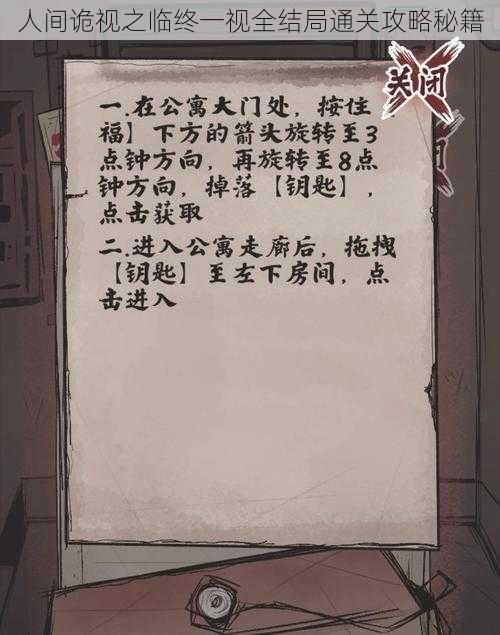 人间诡视之临终一视全结局通关攻略秘籍
关闭
一.在公寓大门处，按住
福】下方的箭头旋转至3
点钟方向，再旋转至8点
钟方向，掉落【钥匙】，
点击获取
二.进入公寓走廊后，拖拽
【钥匙】至左下房间，点
击进入